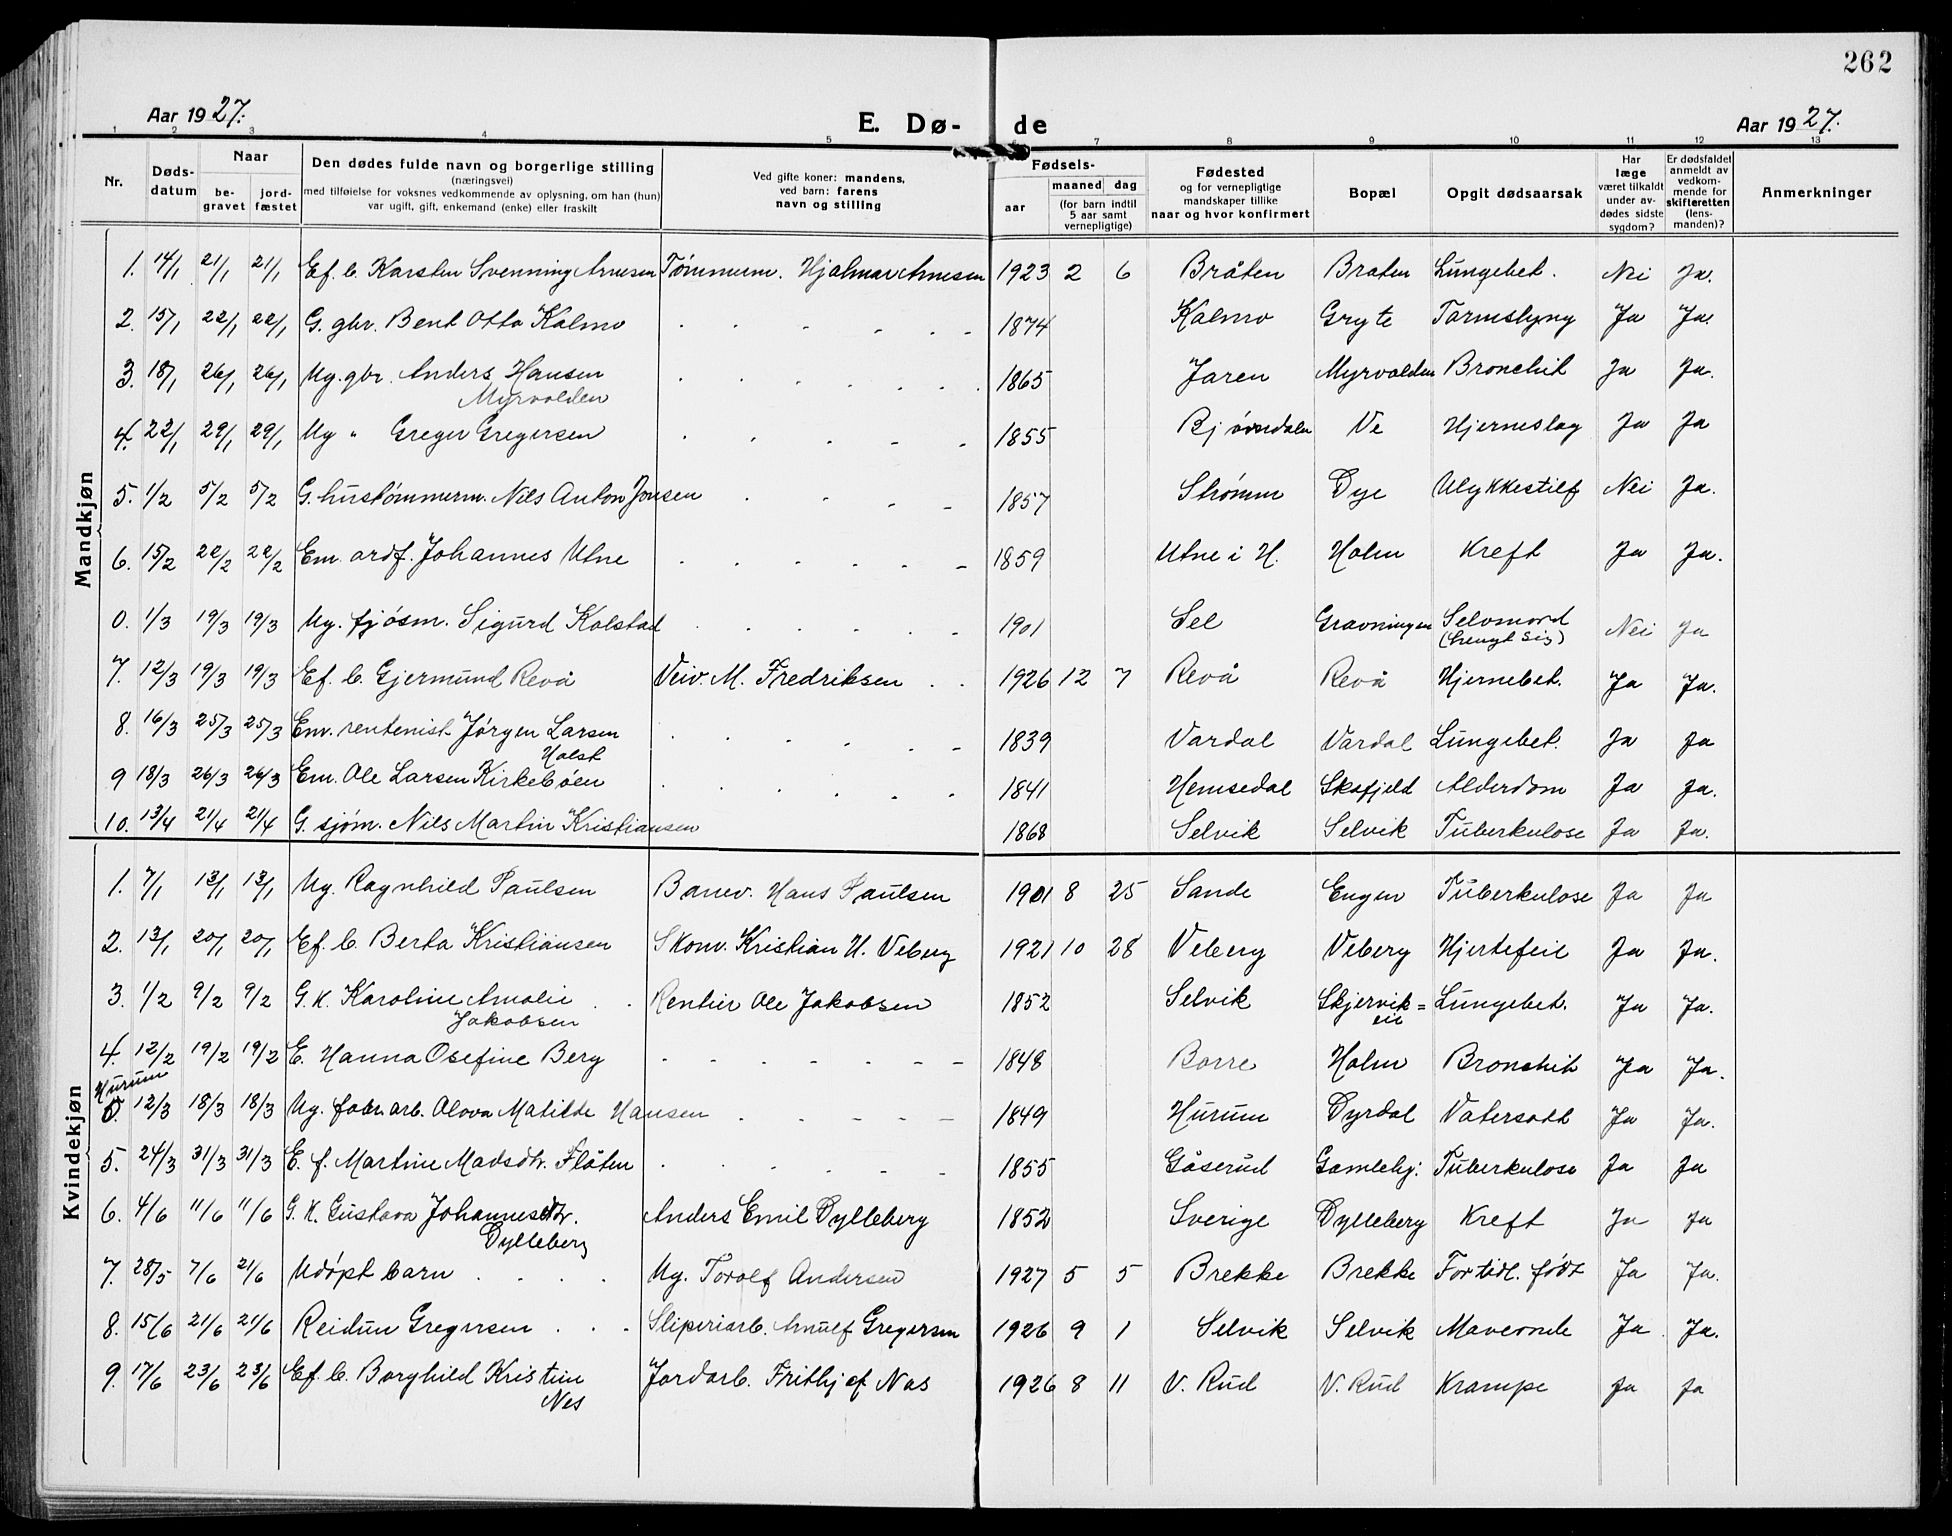 262
Aar 1927. E. Dø- de Aar 1927.
1 2 3 4 5 7 8 9 10 11 12 13
Nr. Døds-datum Naar be-gravet jord-fæstet Den dødes fulde navn og borgerlige stilling (næringsvei) med tilføielse for voksnes vedkommende av oplysning, om han (hun) var ugift, gift, enkemand (enke) eller fraskilt Ved gifte koner: mandens, ved barn: farens navn og stilling Fødsels- aar maaned dag (for barn indtil 5 aar samt vernepligtige) Fødested og for vernepligtige mandskaper tillike naar og hvor konfirmert Bopæl Opgit dødsaarsak Har læge været tilkaldt under av-dødes sidste sygdom? Er dødsfaldet anmeldt av vedkom-mende for skifteretten (lens-manden)? Anmerkninger
Mandkjøn
1. 14/1 21/1 21/1 Ef. b. Karsten Svenning Arnesen Tømmerm. Hjalmar Arnesen 1923 2 6 Bråten Braten Lungebet. Nei Ja.
2. 15/1 22/1 22/1 G. gbr. Bent Otto Kalmo 1874 Kalmo Gryte Tarmslyng Ja Ja.
3. 18/1 26/1 26/1 Ug. gbr. Anders Hansen Myrvolden 1865 Jaren Myrvolden Bronchit Ja Ja.
4. 22/1 29/1 29/1 Ug " Greger Gregersen 1855 Bjørndalen Ve Hjerneslag Ja Ja
5. 1/2 5/2 5/2 G. hustømmerm. Nils Anton Jonsen 1857 Strømm Dye Ulykkestilf Nei Ja.
6. 15/2 22/2 22/2 Em. ordf. Johannes Utne 1859 Utne i H. Holm Kreft Ja Ja.
0. 1/3 19/3 19/3 Ug. fjøsm. Sigurd Kolstad 1901 Sel Gravningen Selvmord (hengt sig) Nei Ja
7. 12/3 19/3 19/3 Ef. b. Gjermund Revå Veiv. M. Fredriksen 1926 12 7 Revå Revå Hjernebet. Ja Ja.
8. 16/3 25/3 25/3 Em. rentenist Jørgen Larsen Holst 1839 Vardal Vardal Lungebet. Ja Ja
9 18/3 26/3 26/3 Em. Ole Larsen Kirkebøen 1841 Hemsedal Skafjeld Alderdom Ja Ja.
10. 13/4 21/4 21/4 G. sjøm. Nils Martin Kristiansen 1868 Selvik Selvik Tuberkulose Ja Ja.
Kvindekjøn
1. 7/1 13/1 13/1 Ug. Ragnhild Paulsen Banev. Hans Paulsen 1901 8 25 Sande Engen Tuberkulose Ja Ja
2. 13/1 20/1 20/1 Ef. b. Berta Kristiansen Skom. Kristian H. Veberg 1921 10 28 Veberg Veberg Hjertefeil Ja Ja.
3. 1/2 9/2 9/2 G. K. Karoline Amalie Jakobsen Rentier Ole Jakobsen 1852 Selvik Skjervik= eie Lungebet. Ja Ja.
4. 12/2 19/2 19/2 E. Hanna Osefine Berg 1848 Borre Holm Bronchit Ja Ja.
Hurum
0. 12/3 18/3 18/3 Ug. fabr. arb. Olova Matilde Hansen 1849 Hurum Dyrdal Vatersott Ja Ja.
5. 24/3 31/3 31/3 E. f. Martine Madsdtr. Flåten 1855 Gåserud Gamlehj. Tuberkulose Ja Ja
6. 4/6 11/6 11/6 G. K. Gustava Johannesdtr. Dylleberg Anders Emil Dylleberg 1852 Sverige Dylleberg Kreft Ja Ja
7. 28/5 7/6 21/6 Udøpt barn Ug. Torolf Andersen 1927 5 5 Brekke Brekke For tidl. født Ja Ja.
8. 15/6 21/6 21/6 Reidun Gregersen Sliperiarb. Arnulf Gregersen 1926 9 1 Selvik Selvik Maveonde Ja Ja.
9. 17/6 23/6 23/6 Ef. b. Borghild Kristine Nes Jordarb. Frithjof Nas 1926 8 11 V. Rud V. Rud Krampe Ja Ja